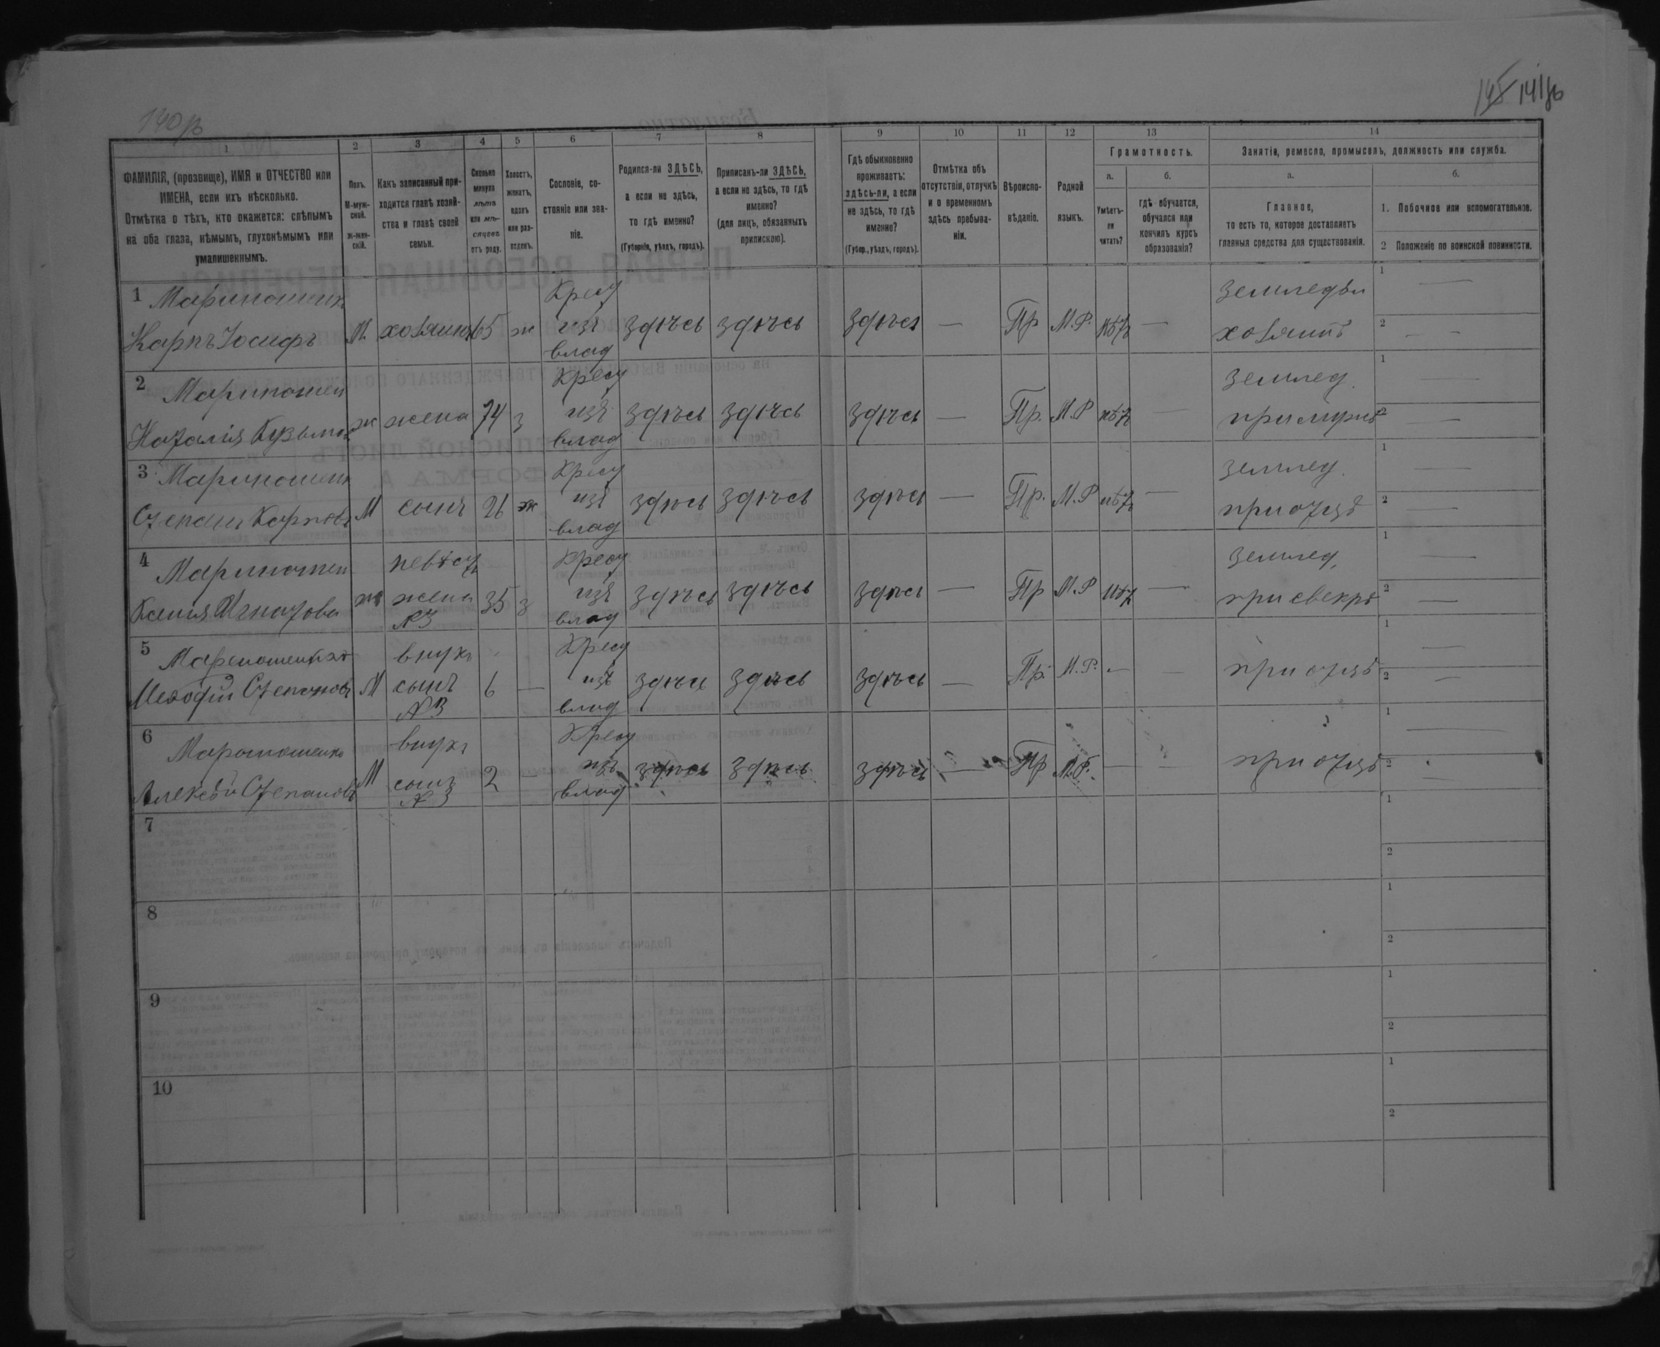 140 ръ
145 141 ръ
1 2 3 4 5 6 7 8 9 10 11 12 13 14
ФАМИЛІЯ, (прозвище), ИМЯ и ОТЧЕСТВО или
ИМЕНА, если ихъ нѣсколько.
Отмѣтка о тѣхъ, кто окажется: слѣпымъ
на оба глаза, нѣмымъ, глухонѣмымъ или
умалишеннымъ.
Полъ.
М-муж-
ской.
Ж-жен-
скій.
Какъ записанный при-
ходится главѣ хозяй-
ства и главѣ своей
семьи.
Сколько
минуло
лѣтъ
или мѣ-
сяцевъ
отъ роду.
Холостъ,
женатъ,
вдовъ
или раз-
веденъ.
Сословіе, со-
стояніе или зва-
ніе.
Родился-ли ЗДѢСЬ,
а если не здѣсь,
то гдѣ именно?
(Губернія, уѣздъ, городъ).
Приписанъ-ли ЗДѢСЬ,
а если не здѣсь, то гдѣ
именно?
(для лицъ, обязанныхъ
припискою).
Гдѣ обыкновенно
проживаетъ:
здѣсь-ли, а если
не здѣсь, то гдѣ
именно?
(Губер., уѣздъ, городъ).
Отмѣтка объ
отсутствіи, отлучкѣ
и о временномъ
здѣсь пребыва-
ніи.
Вѣроиспо-
вѣданіе.
Родной
языкъ.
Грамотность.
а.
Умѣетъ-
ли
читать?
б.
гдѣ обучается,
обучался или
кончилъ курсъ
образованія?
Занятіе, ремесло, промыселъ, должность или служба.
а.
Главное,
то есть то, которое доставляетъ
главныя средства для существованія.
б.
1. Побочное или вспомогательное.
2 Положеніе по воинской повинности.
1 Крест земледѣл 1 —
Карпъ Іосифъ М хозяинъ 65 ж изъ здѣсь здѣсь здѣсь — Пр М.Р. нѣтъ — хозяинъ 2 —
влад
2 Крест землед. 1 —
Наталія Кузьмов ж жена 74 з изъ здѣсь здѣсь здѣсь — Пр. М.Р нѣтъ — при мужѣ 2 —
влад
3 Крест землед. 1 —
Степанъ Карповъ М сынъ 26 ж изъ здѣсь здѣсь здѣсь — Пр. М.Р нѣтъ — при отцѣ 2 —
влад
4 невѣст Крест землед. 1 —
Ксенія Игнатова ж жена 35 з изъ здѣсь здѣсь здѣсь — Пр М.Р нѣтъ — при свекрѣ 2 —
№3 влад
5 внукъ Крест 1 —
Мефодій Степановъ М сынъ 6 — изъ здѣсь здѣсь здѣсь — Пр. М.Р. — — при отцѣ 2 —
№3 влад
6 внукъ Крест 1 —
Алексѣй Степановъ М сынъ 2 изъ здѣсь здѣсь здѣсь — Пр М.Р. — — при отцѣ 2 —
№3 влад
7 1
2
8 1
2
9 1
2
10 1
2